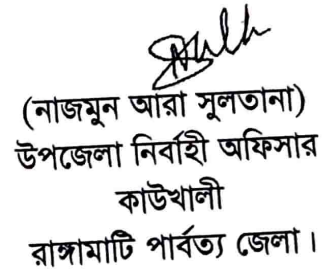 (নাজমুন আরা সুলতানা)
উপজেলা নির্বাহী অফিসার
কাউখালী
রাঙ্গামাটি পার্বত্য জেলা।